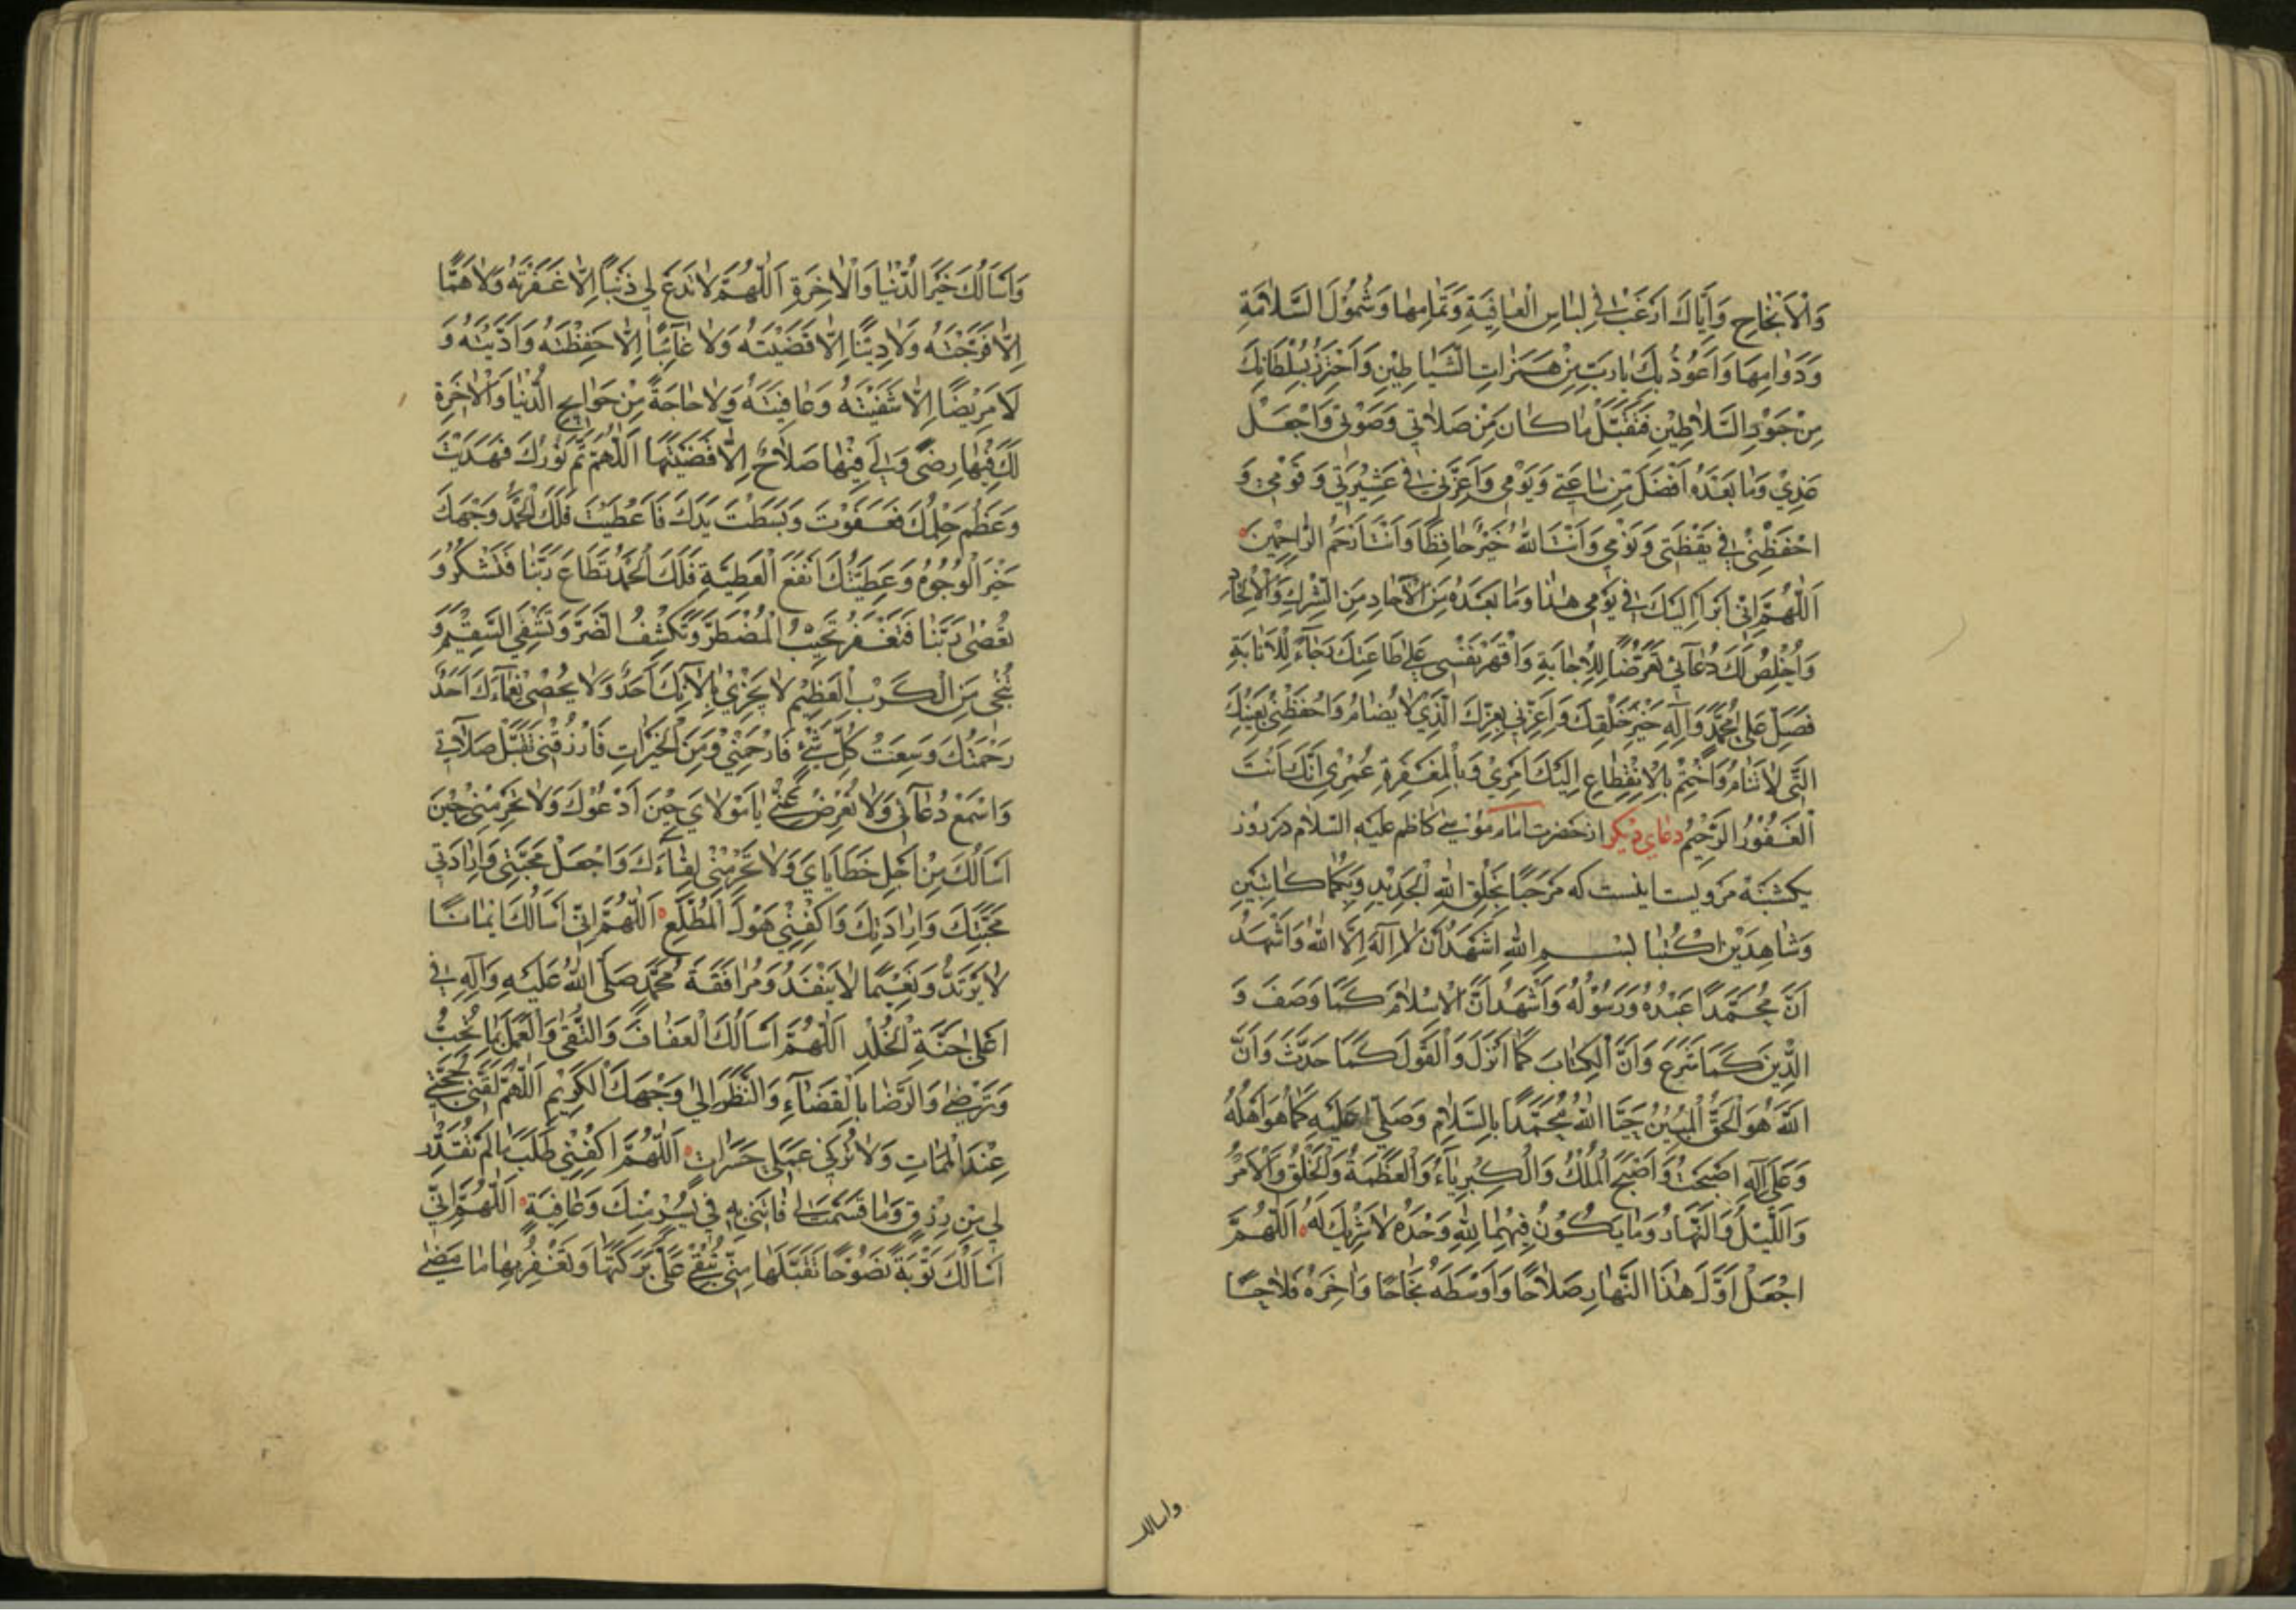 وَالْاَنْجٰاحِ وَاِيّٰاكَ اَرْغَبُ فِي لِبٰاسِ الْعٰافِيَةِ وَتَمٰامِهٰا وَشُمُولِ السَّلٰامَةِ
وَدَوٰامِهٰا وَاَعُوذُ بِكَ يٰا رَبِّ مِنْ هَمَزٰاتِ الشَّيٰاطِينِ وَاَحْتَرِزُ بِسُلْطٰانِكَ
مِنْ جَوْرِ السَّلٰاطِينِ فَتَقَبَّلْ مٰا كٰانَ مِنْ صَلٰاتِي وَصَوْمِي وَاجْعَلْ
غَدِي وَمٰا بَعْدَهُ اَفْضَلَ مِنْ سٰاعَتِي وَيَوْمِي وَاَعِزَّنِي فِي عَشِيرَتِي وَقَوْمِي وَ
احْفَظْنِي فِي يَقْظَتِي وَنَوْمِي وَاَنْتَ اللّٰهُ خَيْرٌ حٰافِظًا وَاَنْتَ اَرْحَمُ الرّٰاحِمِينَ
اَللّٰهُمَّ اِنِّي اَبْرَأُ اِلَيْكَ فِي يَوْمِي هٰذٰا وَمٰا بَعْدَهُ مِنَ الْاٰحٰادِ مِنَ الشِّرْكِ وَالْاِلْحٰادِ
وَاُخْلِصُ لَكَ دُعٰائِي تَعَرُّضًا لِلْاِجٰابَةِ وَاَقْهَرُ نَفْسِي عَلٰى طٰاعَتِكَ رَجٰاءً لِلْاِثٰابَةِ
فَصَلِّ عَلٰى مُحَمَّدٍ وَاٰلِهِ خَيْرِ خَلْقِكَ وَاَعِزَّنِي بِعِزِّكَ الَّذِي لٰا يُضٰامُ وَاحْفَظْنِي بِعَيْنِكَ
الَّتِي لٰا تَنٰامُ وَاخْتِمْ بِالْاِنْقِطٰاعِ اِلَيْكَ اَمْرِي وَبِالْمَغْفِرَةِ عُمْرِي اِنَّكَ اَنْتَ
الْغَفُورُ الرَّحِيمُ دعاى ديكر از حضرت امام موسى كاظم عليه السلام در روز
يكشنبه مرويست اينست كه مَرْحَبًا بِخَلْقِ اللّٰهِ الْجَدِيدِ وَبِكُمٰا كٰاتِبَيْنِ
وَشٰاهِدَيْنِ اكْتُبٰا بِسْمِ اللّٰهِ اَشْهَدُ اَنْ لٰا اِلٰهَ اِلَّا اللّٰهُ وَاَشْهَدُ
اَنَّ مُحَمَّدًا عَبْدُهُ وَرَسُولُهُ وَاَشْهَدُ اَنَّ الْاِسْلٰامَ كَمٰا وَصَفَ وَ
الدِّينَ كَمٰا شَرَعَ وَاَنَّ الْكِتٰابَ كَمٰا اَنْزَلَ وَالْقَوْلَ كَمٰا حَدَّثَ وَاَنَّ
اللّٰهَ هُوَ الْحَقُّ الْمُبِينُ حَيَّا اللّٰهُ مُحَمَّدًا بِالسَّلٰامِ وَصَلّٰى عَلَيْهِ كَمٰا هُوَ اَهْلُهُ
وَعَلٰى اٰلِهِ اَصْبَحْتُ وَاَصْبَحَ الْمُلْكُ وَالْكِبْرِيٰاءُ وَالْعَظَمَةُ وَالْخَلْقُ وَالْاَمْرُ
وَاللَّيْلُ وَالنَّهٰارُ وَمٰا يَكُونُ فِيهِمٰا لِلّٰهِ وَحْدَهُ لٰا شَرِيكَ لَهُ اَللّٰهُمَّ
اجْعَلْ اَوَّلَ هٰذَا النَّهٰارِ صَلٰاحًا وَاَوْسَطَهُ نَجٰاحًا وَاٰخِرَهُ فَلٰاحًا
واسالك
وَاَسْاَلُكَ خَيْرَ الدُّنْيٰا وَالْاٰخِرَةِ اَللّٰهُمَّ لٰا تَدَعْ لِي ذَنْبًا اِلَّا غَفَرْتَهُ وَلٰا هَمًّا
اِلَّا فَرَّجْتَهُ وَلٰا دَيْنًا اِلَّا قَضَيْتَهُ وَلٰا غٰائِبًا اِلَّا حَفِظْتَهُ وَاَدَّيْتَهُ وَ
لٰا مَرِيضًا اِلَّا شَفَيْتَهُ وَعٰافَيْتَهُ وَلٰا حٰاجَةً مِنْ حَوٰايِجِ الدُّنْيٰا وَالْاٰخِرَةِ
لَكَ فِيهٰا رِضًى وَلِي فِيهٰا صَلٰاحٌ اِلَّا قَضَيْتَهٰا اَللّٰهُمَّ تَمَّ نُورُكَ فَهَدَيْتَ
وَعَظُمَ حِلْمُكَ فَعَفَوْتَ وَبَسَطْتَ يَدَكَ فَاَعْطَيْتَ فَلَكَ الْحَمْدُ وَجْهُكَ
خَيْرُ الْوُجُوهِ وَعَطِيَّتُكَ اَنْفَعُ الْعَطِيَّةِ فَلَكَ الْحَمْدُ تُطٰاعُ رَبَّنٰا فَتَشْكُرُ وَ
تُعْصٰى رَبَّنٰا فَتَغْفِرُ تُجِيبُ الْمُضْطَرَّ وَتَكْشِفُ الضُّرَّ وَتَشْفِي السَّقِيمَ وَ
تُنْجِي مِنَ الْكَرْبِ الْعَظِيمِ لٰا يَجْزِي بِاٰلٰائِكَ اَحَدٌ وَلٰا يُحْصِي نَعْمٰاءَكَ اَحَدٌ
رَحْمَتُكَ وَسِعَتْ كُلَّ شَيْءٍ فَارْحَمْنِي وَمِنَ الْخَيْرٰاتِ فَارْزُقْنِي تَقَبَّلْ صَلٰاتِي
وَاسْمَعْ دُعٰائِي وَلٰا تُعْرِضْ عَنِّي يٰا مَوْلٰايَ حِينَ اَدْعُوكَ وَلٰا تَحْرِمْنِي حِينَ
اَسْاَلُكَ مِنْ اَجْلِ خَطٰايٰايَ وَلٰا تَحْرِمْنِي لِقٰاءَكَ وَاجْعَلْ مَحَبَّتِي وَاِرٰادَتِي
مَحَبَّتَكَ وَاِرٰادَتَكَ وَاكْفِنِي هَوْلَ الْمُطَّلَعِ اَللّٰهُمَّ اِنِّي اَسْاَلُكَ اِيمٰانًا
لٰا يَرْتَدُّ وَنَعِيمًا لٰا يَنْفَدُ وَمُرٰافَقَةَ مُحَمَّدٍ صَلَّى اللّٰهُ عَلَيْهِ وَاٰلِهِ فِي
اَعْلٰى جَنَّةِ الْخُلْدِ اَللّٰهُمَّ اَسْاَلُكَ الْعَفٰافَ وَالتُّقٰى وَالْعَمَلَ بِمٰا تُحِبُّ
وَتَرْضٰى وَالرِّضٰا بِالْقَضٰاءِ وَالنَّظَرَ اِلٰى وَجْهِكَ الْكَرِيمِ اَللّٰهُمَّ لَقِّنِّي حُجَّتِي
عِنْدَ الْمَمٰاتِ وَلٰا تُرِنِي عَمَلِي حَسَرٰاتٍ اَللّٰهُمَّ اكْفِنِي طَلَبَ مٰا لَمْ تُقَدِّرْ
لِي مِنْ رِزْقٍ وَمٰا قَسَمْتَ لِي فَاْتِنِي بِهِ فِي يُسْرٍ مِنْكَ وَعٰافِيَةٍ اَللّٰهُمَّ اِنِّي
اَسْاَلُكَ تَوْبَةً نَصُوحًا تَقَبَّلُهٰا مِنِّي تُبْقِي عَلَيَّ بَرَكَتَهٰا وَتَغْفِرُ بِهٰا مٰا مَضٰى